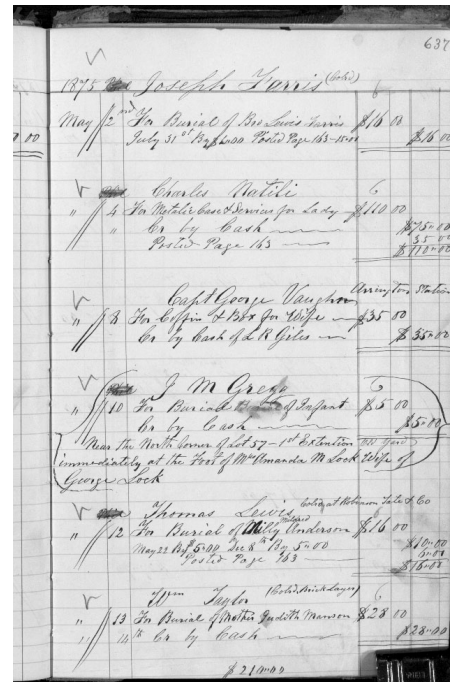 637
1875 Joseph Farris (Cold)
May 2nd For Burial of Bro Lewis Farris $16 00
July 31st By 1.00 Posted Page 163-15.00 $16 00
00
Charles Natili
" 4 For Metalic Case & Services for Lady $110 00
" Cr by Cash $75-00
Posted Page 163 35 00
$110-00
Capt George Vaughn Arrington Station
" 8 For Coffin & Box for Wife $35 00
Cr by Cash of L R Giles $35-00
J M Gregg
" 10 For Burial of Infant $5 00
Cr by Cash $5-00
Near the North Corner of Lot 57-1st Extention Old Yard
immediately at the Foot of Mrs Amanda M Lock Wife of
George Lock
Thomas Lewis Cold, at Robinson Tate & Co
Mildred
" 12 For Burial of Milly Anderson $16 00
May 22 By $5.00 Dec 8th By 5.00 $10-00
Posted Page 163 6-00
$16-00
Wm Taylor (Cold, Brick Layer)
" 13 For Burial of Mother Judith Manson $28 00
" 14th Cr by Cash $28-00
$210-00